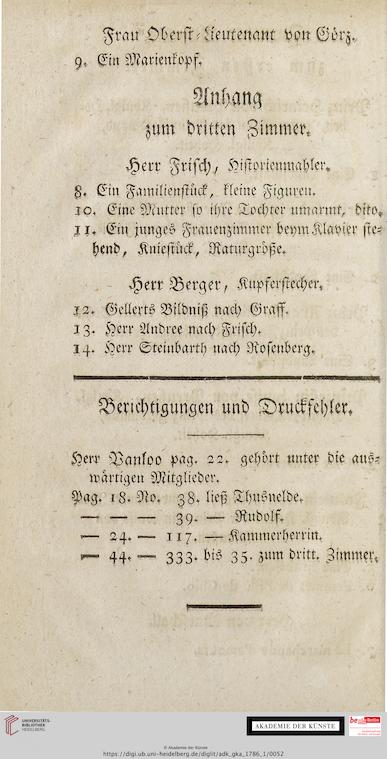 Frau Oberst-Lieutenant von Görz.
9. Ein Marienkopf.
Anhang
zum dritten Zimmer.
Herr Frisch, Historienmahler.
8. Ein Familienstück, kleine Figuren.
10. Eine Mutter so ihre Tochter umarmt, dito.
11. Ein junges Frauenzimmer beym Klavier ste-
hend, Kniestück, Naturgröße.
Herr Berger, Kupferstecher.
12. Gellerts Bildniß nach Graff.
13. Herr Andree nach Frisch.
14. Herr Steinbarth nach Rosenberg.
Berichtigungen und Druckfehler.
Herr Vanloo pag. 22. gehört unter die aus-
wärtigen Mitglieder.
Pag. 18. No. 38. ließ Thusnelde.
— — — 39. — Rudolf.
— 24. — 117. — Kammerherrin.
— 44. — 333. bis 35. zum dritt. Zimmer.
UNIVERSITÄTS-
BIBLIOTHEK
HEIDELBERG
AKADEMIE DER KÜNSTE
be Berlin
© Akademie der Künste
https://digi.ub.uni-heidelberg.de/diglit/adk_gka_1786_1/0052